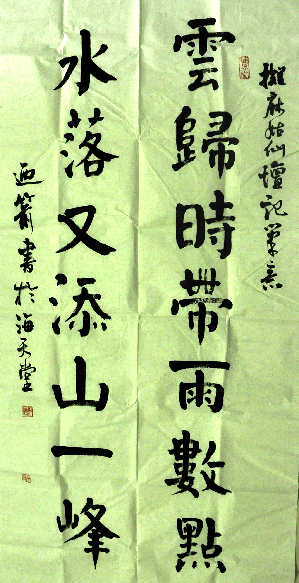 擬麻姑仙壇記筆意
雲歸時帶雨數點
水落又添山一峰
迎節書於海天堂